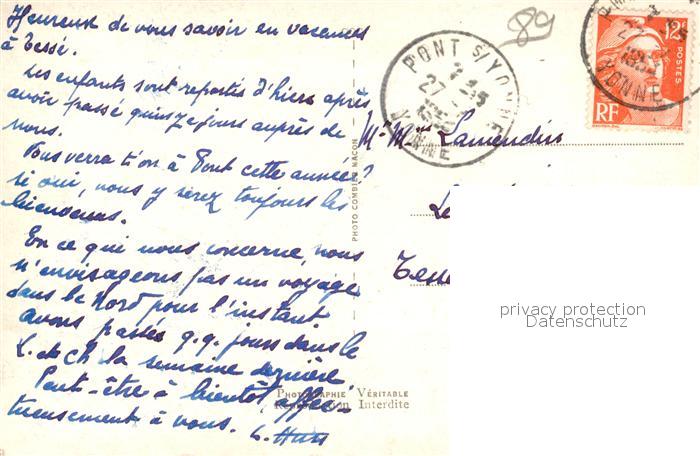 Heureux de vous savoir en vacances
à Tessé.
Les enfants sont repartis d'hier après
avoir passé quinze jours auprès de
nous.
Vous verra t'on à Pont cette année?
si oui, vous y serez toujours les
bienvenus.
En ce qui nous concerne, nous
n'envisageons pas un voyage
dans le Nord pour l'instant
avons passés q.q. jours dans le
L. et Ch la semaine dernière
Peut-être à bientôt, affec-
tueusement à vous.
89
PONT S/YONNE
27
YONNE
12F
POSTES
RF
YONNE
Mr Mme Lamendin
Le
Tess
PHOTO COMBIER MACON
PHOTOGRAPHIE VÉRITABLE
Interdite
privacy protection
Datenschutz